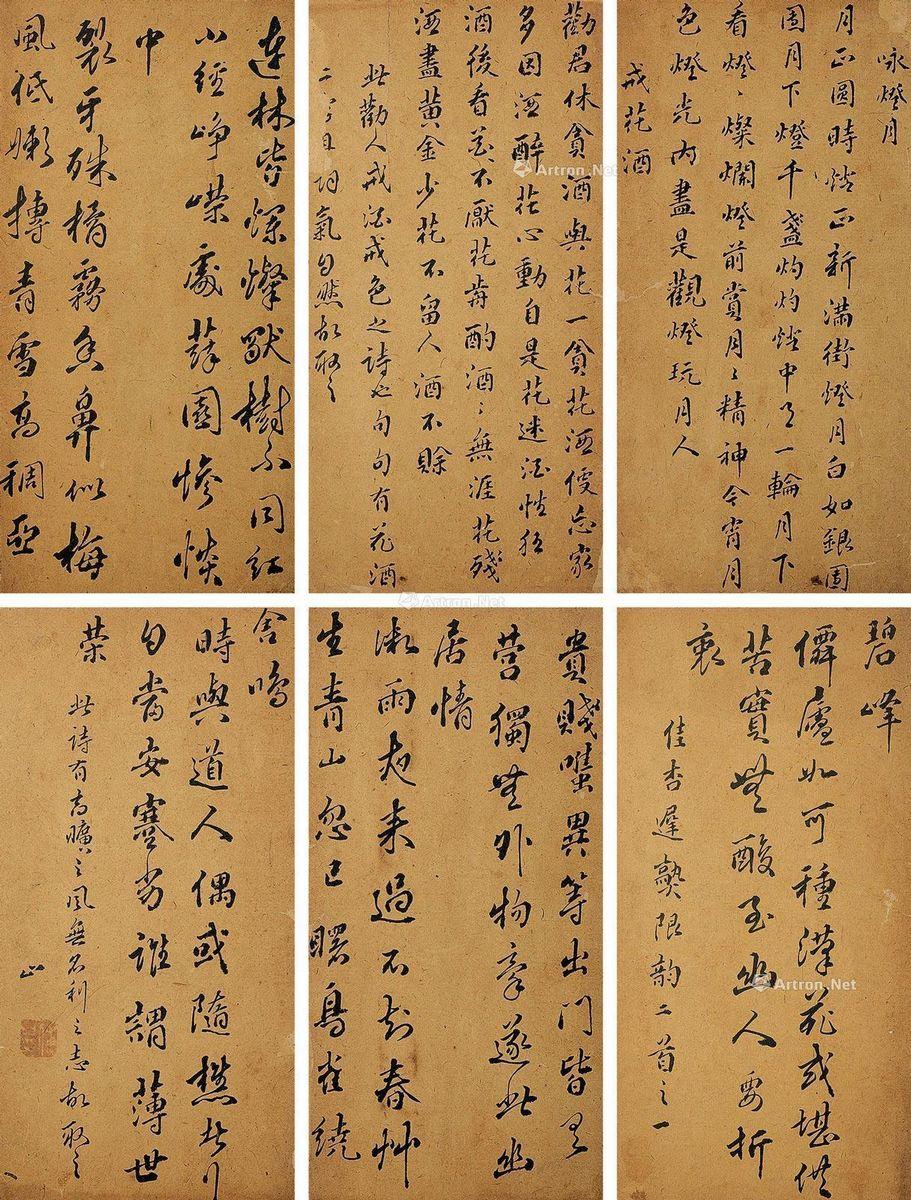 咏燈月
月正圓時燈正新滿街燈月白如銀團
團月下燈千盞灼灼燈中月一輪月下
看燈燈燦爛燈前賞月月精神今宵月
色燈光内盡是觀燈玩月人
戒花酒
勸君休貪酒與花一貪花酒便忘家
多因酒醉花心動自是花迷酒性狂
酒後看花花不厭花前酌酒酒無涯花殘
酒盡黄金少花不留人酒不賒
此勸人戒酒戒色之詩也句句有花酒
二字且詞氣自然故取之
連林皆爛燦獸樹不同紅
小經崢嶸處薜園慘淡
中
裂牙殊霧香鼻似梅
風低嫩摶青雪高稠亞
碧峰
僻廬如可種漢苑或堪供
苦實無酸至幽人要折
衷
佳杏遲熟限韵二首之一
貴賤雖異等出門皆有
營獨無外物牽遂此幽
居情
微雨夜來過不知春艸
生青山忽已曙鳥雀繞
舍鳴
時與道人偶或隨樵者行
自當安蹇劣誰謂薄世
榮
此詩有高曠之風無名利之志故取之
止
Artron.Net
Artron.Net
Artron.Net
Artron.Net
Artron.Net